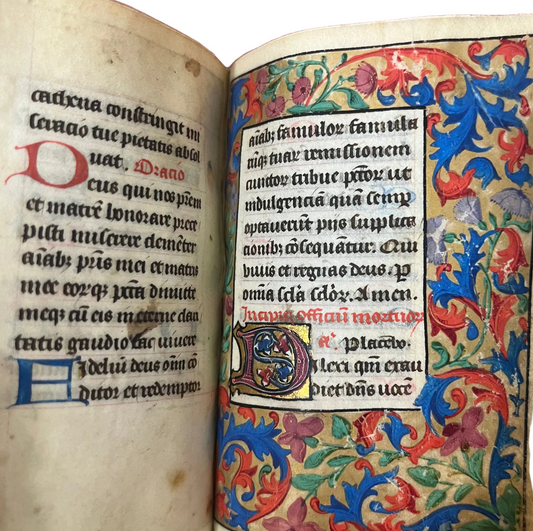 cathena constringit mi
seracio tue pietatis absol
uat. Oracio
Deus qui nos prem
et matre honorare prece
pisti miserere clementer
aiabz pris mei et matris
mee eorqz pcta dimitte
meqz cu eis in eterne clari
tatis gaudio fac vivere
Fidelium deus oim co
ditor et redemptor
aiabz famulor famula
rumqz tuar remissionem
cunctor tribue pctor ut
indulgencia qua semp
optaverunt pijs supplica
cionibz cosequatur. Qui
vivis et regnas deus. P
omia scla sclor. Amen.
Incipit officiu mortuor
a Placebo.
Dilexi qm exau
diet dns voce